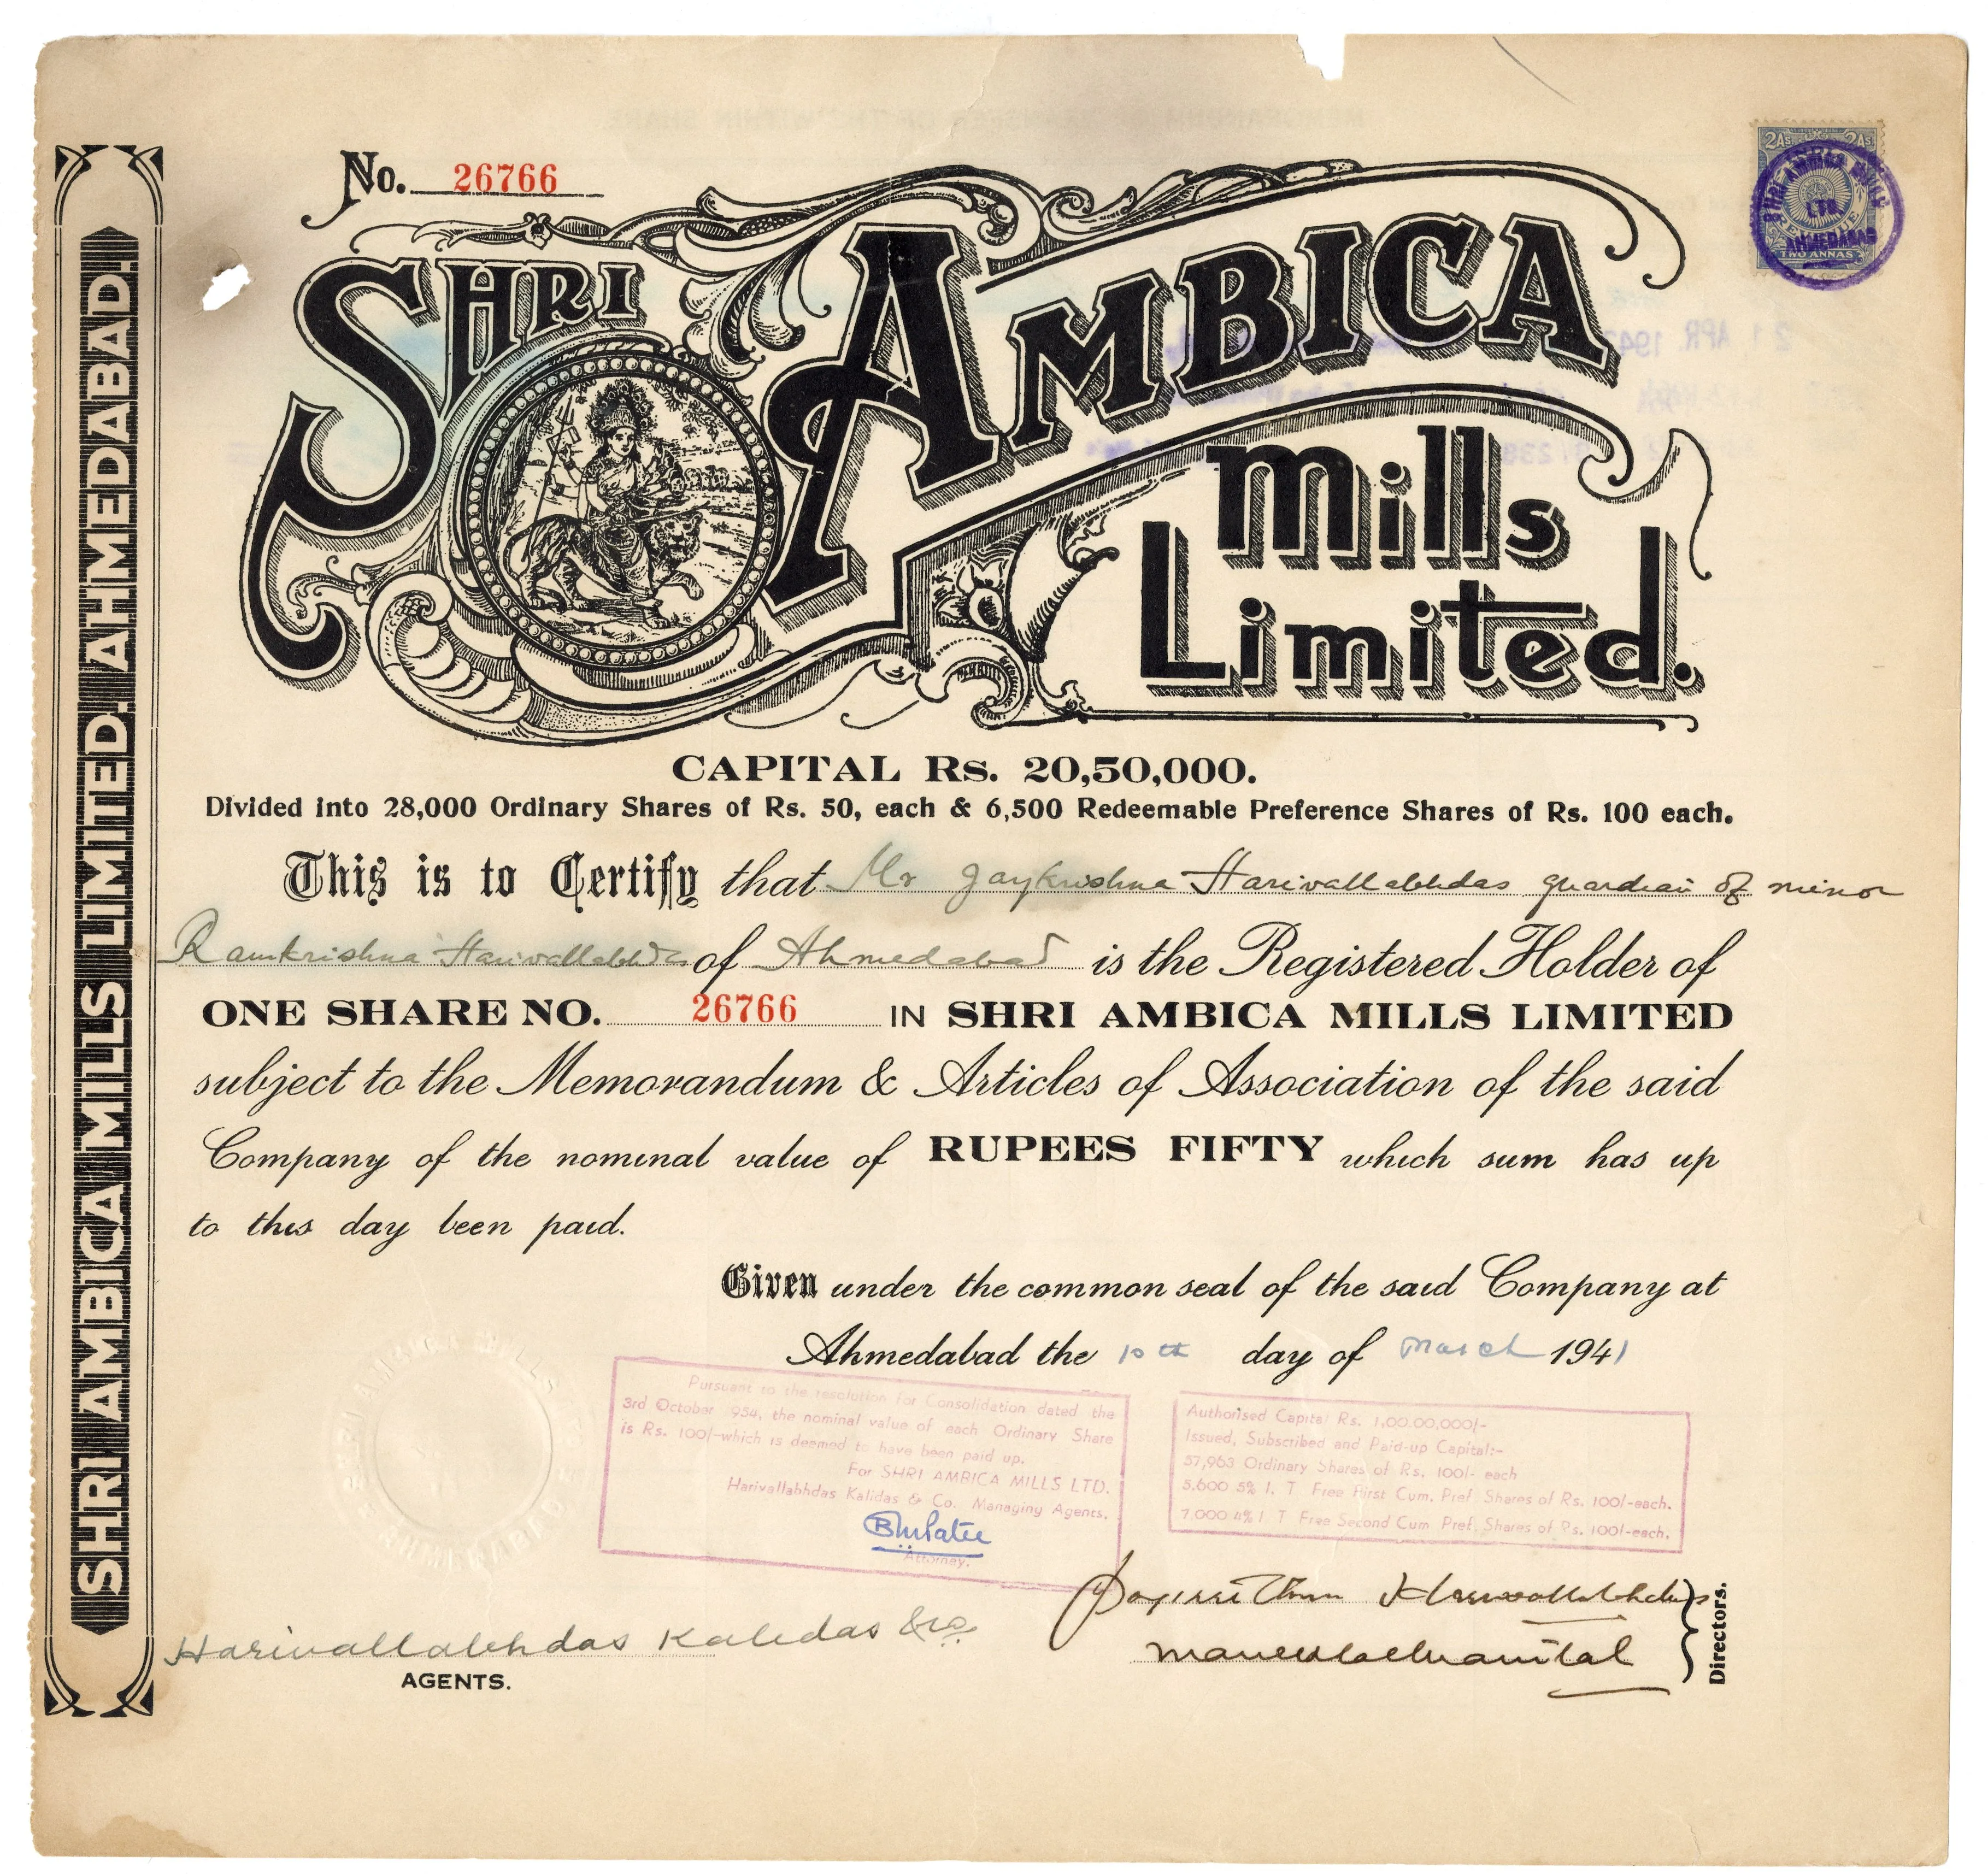 No. 26766
SHRI AMBICA Mills Limited.
2As 2As
SHRI AMBICA MILLS LTD. AHMEDABAD
TWO ANNAS
SHRI AMBICA MILLS LIMITED. AHMEDABAD.
CAPITAL Rs. 20,50,000.
Divided into 28,000 Ordinary Shares of Rs. 50, each & 6,500 Redeemable Preference Shares of Rs. 100 each.
This is to Certify that Mr Jaykrishna Harivallabhdas guardian of minor
Ramkrishna Harivallabhdas of Ahmedabad is the Registered Holder of
ONE SHARE NO. 26766 IN SHRI AMBICA MILLS LIMITED
subject to the Memorandum & Articles of Association of the said
Company of the nominal value of RUPEES FIFTY which sum has up
to this day been paid.
Given under the common seal of the said Company at
Ahmedabad the 10th day of March 1941
Pursuant to the resolution for Consolidation dated the
3rd October 954, the nominal value of each Ordinary Share
is Rs. 100/-which is deemed to have been paid up.
For SHRI AMBICA MILLS LTD.
Harivallabhdas Kalidas & Co. Managing Agents.
Attorney.
Authorised Capital Rs. 1,00,00,000/-
Issued, Subscribed and Paid-up Capital:-
57,963 Ordinary Shares of Rs. 100/- each
5,600 5% I. T Free First Cum. Pref Shares of Rs. 100/-each.
7,000 4% I T Free Second Cum Pref. Shares of Rs. 100/-each.
Harivallabhdas Kalidas & Co.
AGENTS.
Harivallabhdas
Directors.